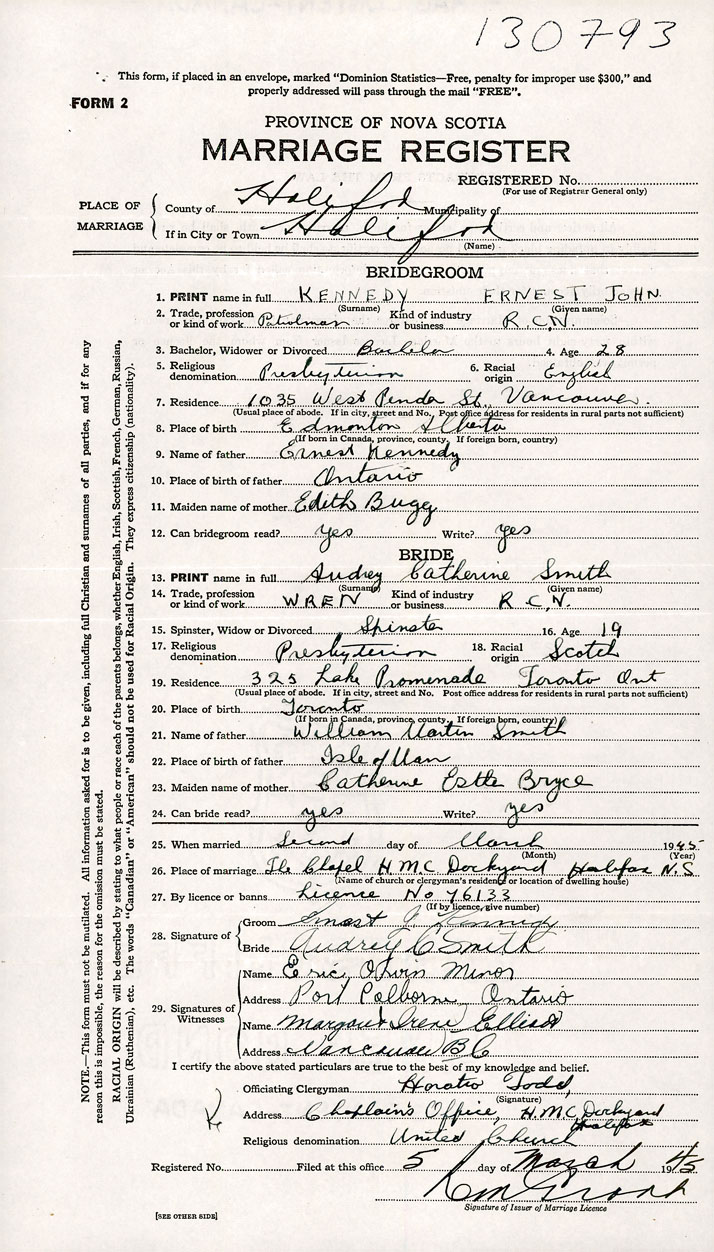 130793
This form, if placed in an envelope, marked "Dominion Statistics—Free, penalty for improper use $300," and
properly addressed will pass through the mail "FREE".
FORM 2
PROVINCE OF NOVA SCOTIA
MARRIAGE REGISTER
REGISTERED No.
(For use of Registrar General only)
PLACE OF MARRIAGE
County of Halifax Municipality of
If in City or Town Halifax
(Name)
BRIDEGROOM
1. PRINT name in full KENNEDY ERNEST JOHN
(Surname) (Given name)
2. Trade, profession or kind of work Patrolman Kind of industry or business R.C.N.
3. Bachelor, Widower or Divorced Bachelor 4. Age 28
5. Religious denomination Presbyterian 6. Racial origin English
7. Residence 1035 West Pender St., Vancouver.
(Usual place of abode. If in city, street and No. Post office address for residents in rural parts not sufficient)
8. Place of birth Edmonton Alberta
(If born in Canada, province, county. If foreign born, country)
9. Name of father Ernest Kennedy
10. Place of birth of father Ontario
11. Maiden name of mother Edith Bugg
12. Can bridegroom read? yes Write? yes
BRIDE
13. PRINT name in full Audrey Catherine Smith
(Surname) (Given name)
14. Trade, profession or kind of work WREN Kind of industry or business R.C.N.
15. Spinster, Widow or Divorced Spinster 16. Age 19
17. Religious denomination Presbyterian 18. Racial origin Scotch
19. Residence 325 Lake Promenade Toronto Ont
(Usual place of abode. If in city, street and No. Post office address for residents in rural parts not sufficient)
20. Place of birth Toronto
(If born in Canada, province, county. If foreign born, country)
21. Name of father William Martin Smith
22. Place of birth of father Isle of Man
23. Maiden name of mother Catherine Bryce
24. Can bride read? yes Write? yes
25. When married Second day of March 1945
(Month) (Year)
26. Place of marriage The Chapel H.M.C. Dockyard Halifax N.S
(Name of church or clergyman's residence or location of dwelling house)
27. By licence or banns Licence No 76133
(If by licence, give number)
28. Signature of
Groom Ernest J. Kennedy
Bride Audrey C Smith
29. Signatures of Witnesses
Name Eric Minor
Address Port Colborne, Ontario
Name Margaret Irene
Address Vancouver B C
I certify the above stated particulars are true to the best of my knowledge and belief.
Officiating Clergyman Horatio Todd,
(Signature)
Address Chaplain's Office, H.M.C. Dockyard
Halifax
Religious denomination United Church
Registered No. Filed at this office 5 day of March 1945
Signature of Issuer of Marriage Licence
[SEE OTHER SIDE]
NOTE.—This form must not be mutilated. All information asked for is to be given, including full Christian and surnames of all parties, and if for any
reason this is impossible, the reason for the omission must be stated.
RACIAL ORIGIN will be described by stating to what people or race each of the parents belongs, whether English, Irish, Scottish, French, German, Russian,
Ukrainian (Ruthenian), etc. The words "Canadian" or "American" should not be used for Racial Origin. They express citizenship (nationality).